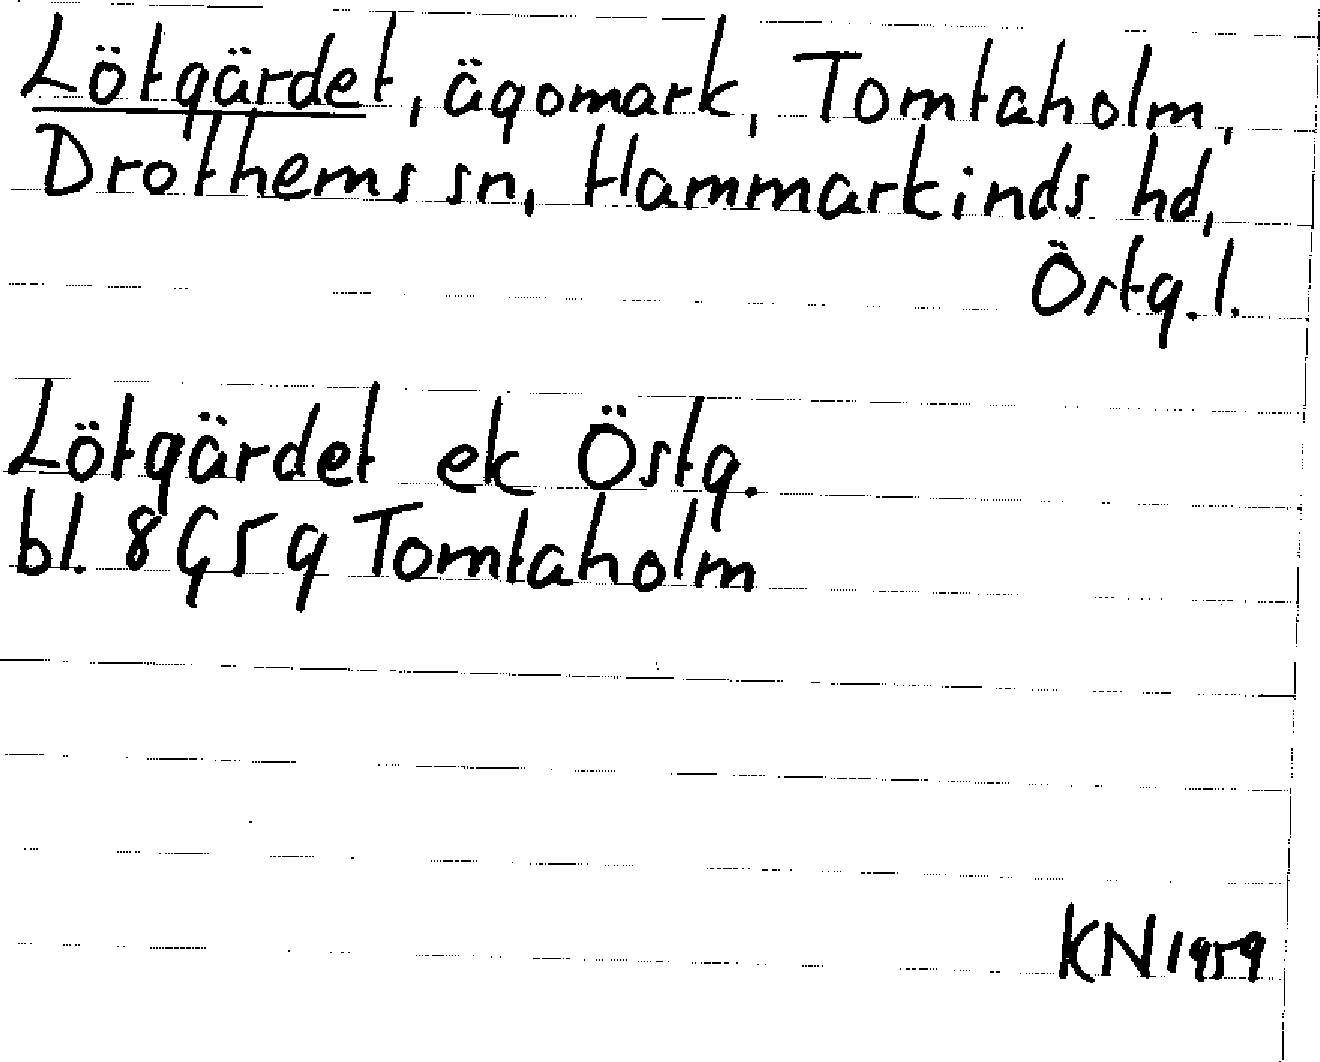 Lötgärdet, ägomark, Tomtaholm,
Drothems sn, Hammarkinds hd,
Östg. l.
Lötgärdet ek Östg.
bl. 8G5g Tomtaholm
KN 1959